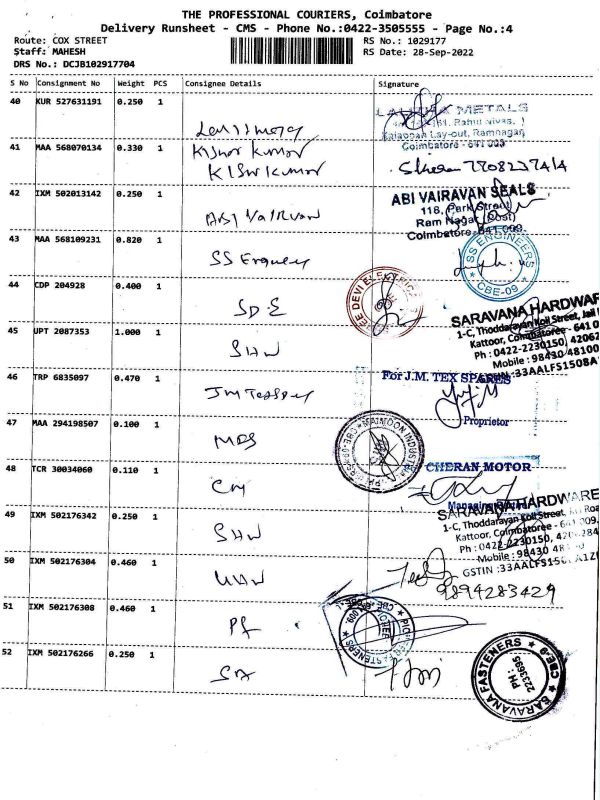 THE PROFESSIONAL COURIERS, Coimbatore
Delivery Runsheet - CMS - Phone No.:0422-3505555 - Page No.:4
Route: COX STREET
RS No.: 1029177
Staff: MAHESH
RS Date: 28-Sep-2022
DRS No.: DCJB102917704
S No Consignment No Weight PCS Consignee Details Signature
40 KUR 527631191 0.250 1
METALS
Rahul Nivas,
Lay-out, Ramnagar,
Coimbatore - 641 009
41 MAA 568070134 0.330 1 Kishor Kumar
Kishor Kumar
42 IXM 502013142 0.250 1
ABI VAIRAVAN SEALS
116, Park Street
Ram Nagar (Post)
Coimbatore-641 009.
43 MAA 568109231 0.820 1
SS ENGINEERS
CBE-09
44 CDP 204928 0.400 1 SDE
45 UPT 2087353 1.000 1 SHW
SARAVANA HARDWAR
1-C, Thoddarayan Koil Street, Jail
Kattoor, Coimbatoree - 641 0
Ph : 0422-2230150, 42062
Mobile : 98430 48100
:33AALFS1508A1
46 TRP 6835097 0.470 1
For J.M. TEX SPARES
Proprietor
47 MAA 294198507 0.100 1 MDS
MAIMOON INDUSTRI
48 TCR 30034060 0.110 1 CM
CHERAN MOTOR
49 IXM 502176342 0.250 1 SHW
SARAVANA HARDWARE
1-C, Thoddarayan Koil Street,
Kattoor, Coimbatore - 641 009.
Ph : 0422-2230150,
Mobile : 98430
50 IXM 502176304 0.460 1
9894283429
51 IXM 502176308 0.460 1 PF
FASTENERS
52 IXM 502176266 0.250 1 SA
SARAVANA FASTENERS
CBE-9
PH :
2233695